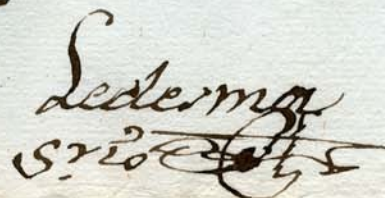 Ledesma
Srio